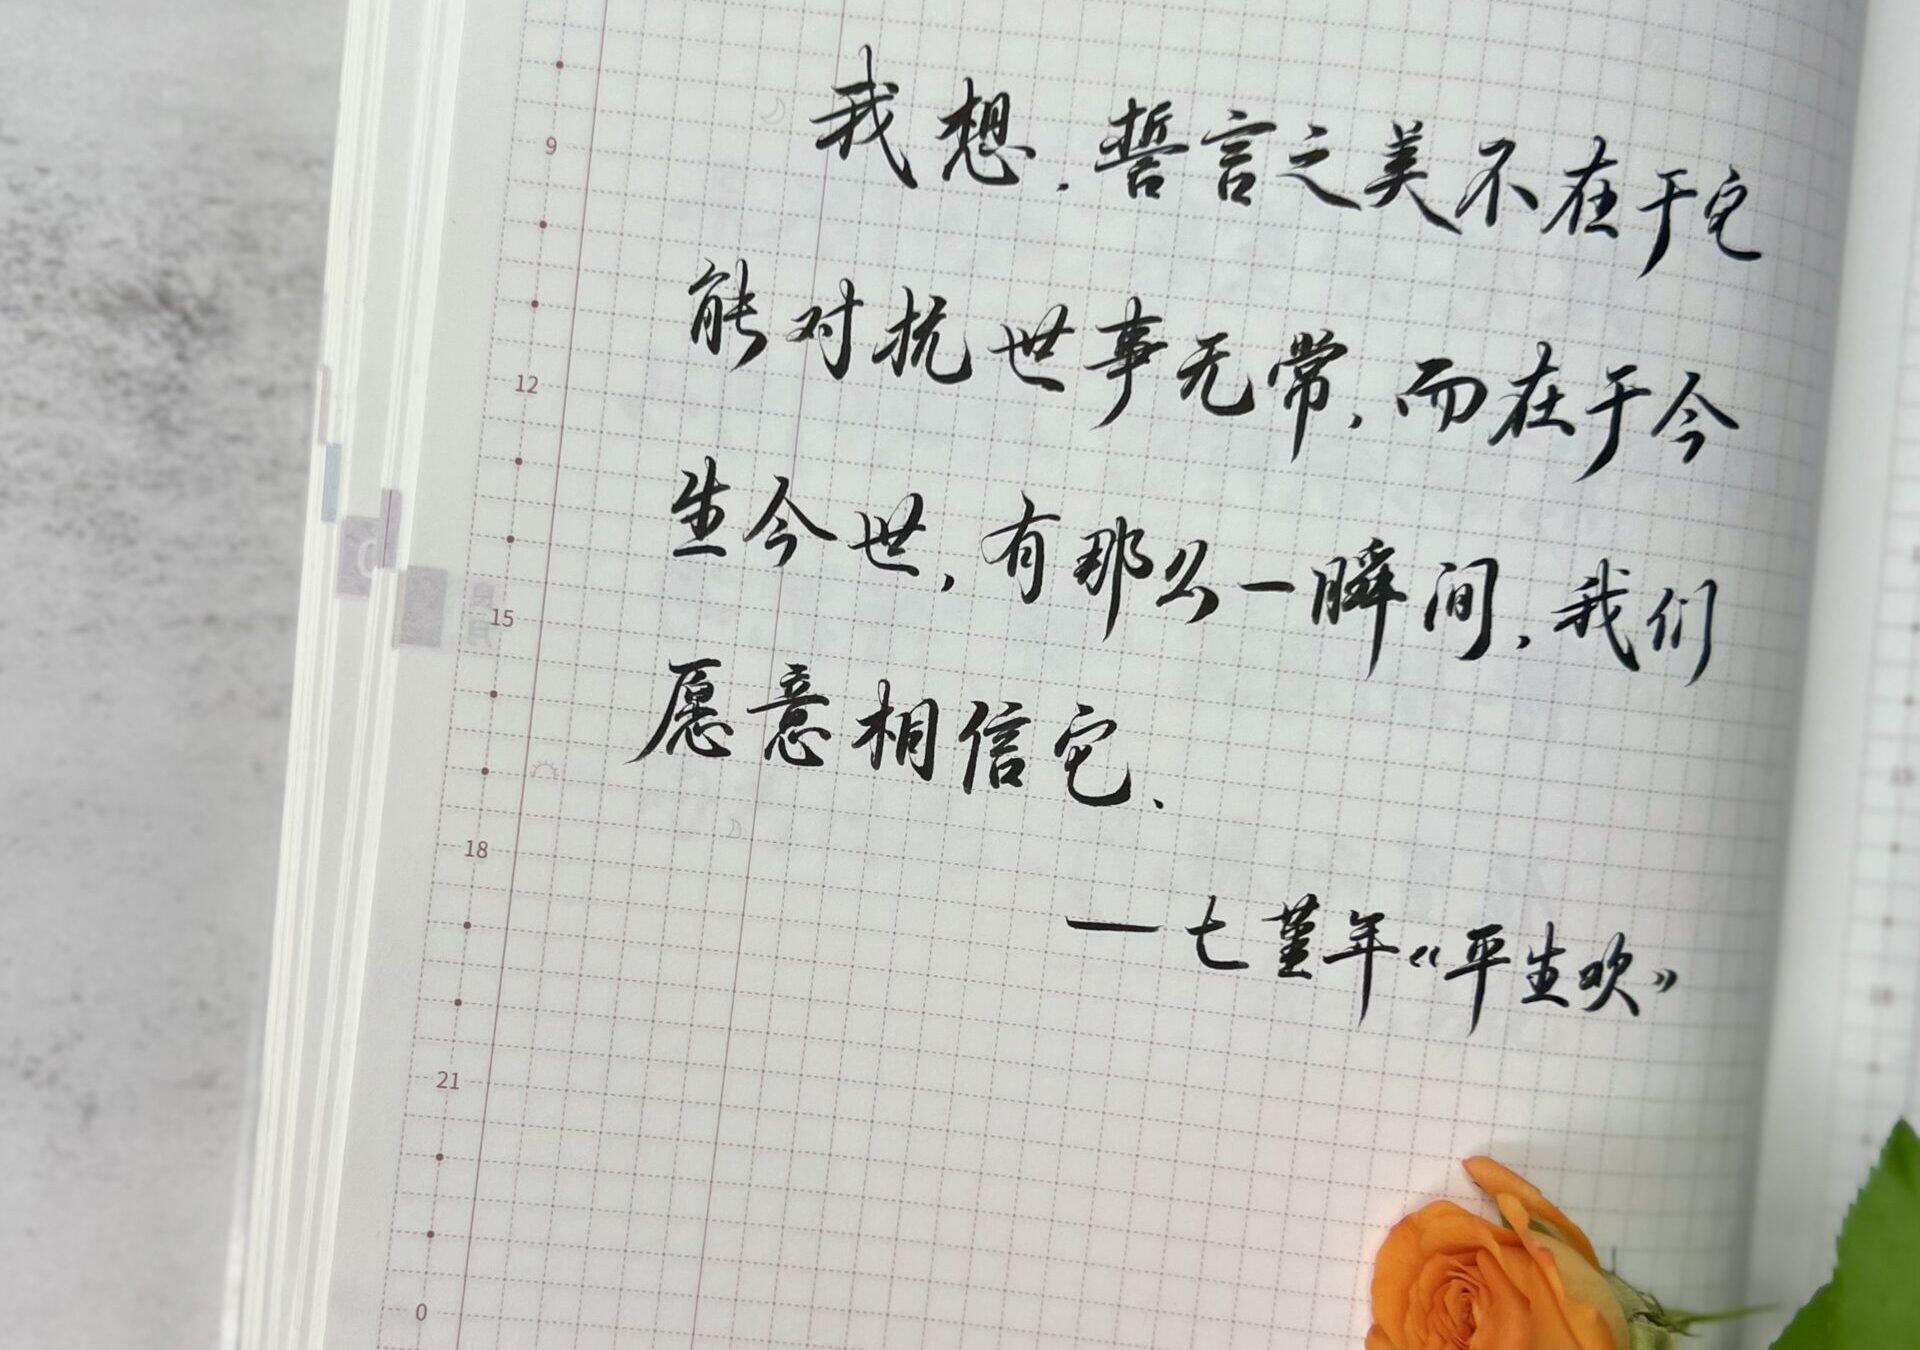 我想，誓言之美不在于它
能对抗世事无常，而在于今
生今世，有那么一瞬间，我们
愿意相信它.
—七堇年《平生欢》
9
12
15
18
21
0